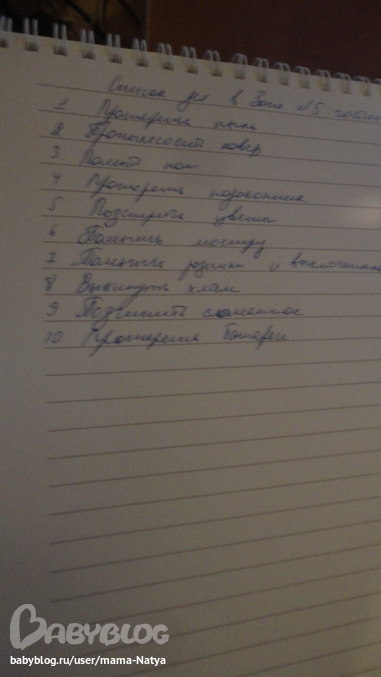 Список дел в Зоне №5: гостин
1 Протереть пыль
2 Пропылесосить ковер
3 Помыть пол
4 Протереть подоконник
5 Подстричь цветы
6 Помыть люстру
7 Помыть розетки и выключатели
8 Выкинуть хлам
9 Подчинить сломанное
10 Протереть батареи
BABYBLOG
babyblog.ru/user/mama-Natya